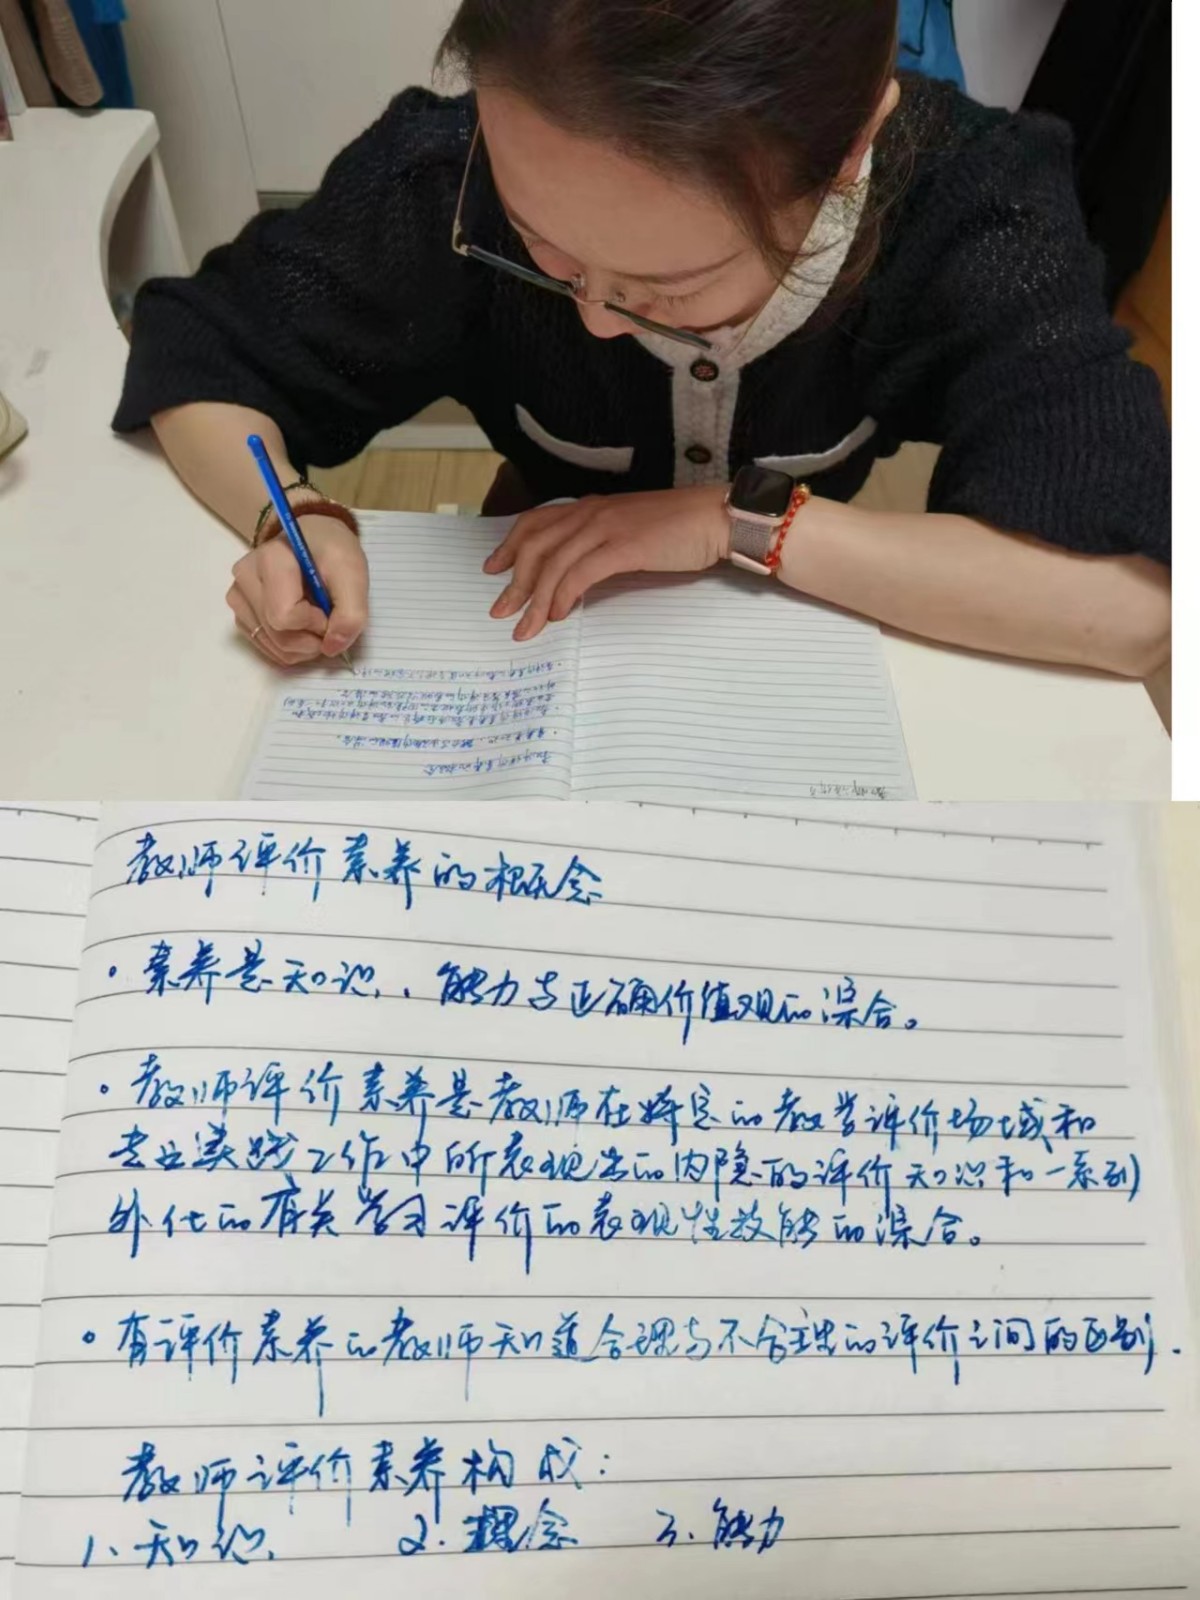 教师评价素养的概念
• 素养是知识、能力与正确价值观的综合。
• 教师评价素养是教师在特定的教学评价场域和
专业实践工作中所表现出的内隐的评价知识和一系列
外化的有关学习评价的表现性技能的综合。
• 有评价素养的教师知道合理与不合理的评价之间的区别.
教师评价素养构成:
1、知识 2. 理念 3、能力